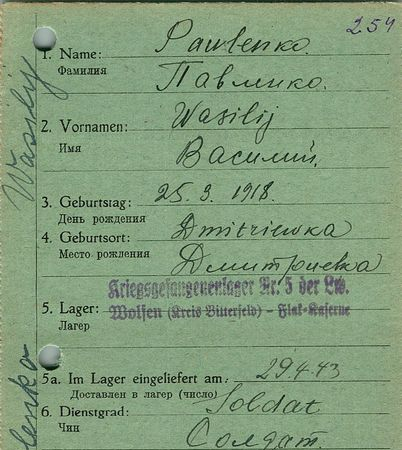 254
1. Name: Pawlenko.
Фамилия Павленко.
2. Vornamen: Wasilij
Имя Василий.
3. Geburtstag: 25. 3. 1918.
День рождения
4. Geburtsort: Dmitriewka
Место рождения Дмитриевка
Kriegsgefangenenlager Nr. 5 der Lw.
5. Lager: Wolfen (Kreis Bitterfeld) – Flak-Kaserne
Лагер
5a. Im Lager eingeliefert am: 29.4.43
Доставлен в лагер (число)
6. Dienstgrad: Soldat
Чин Солдат.
Wassily
lenko